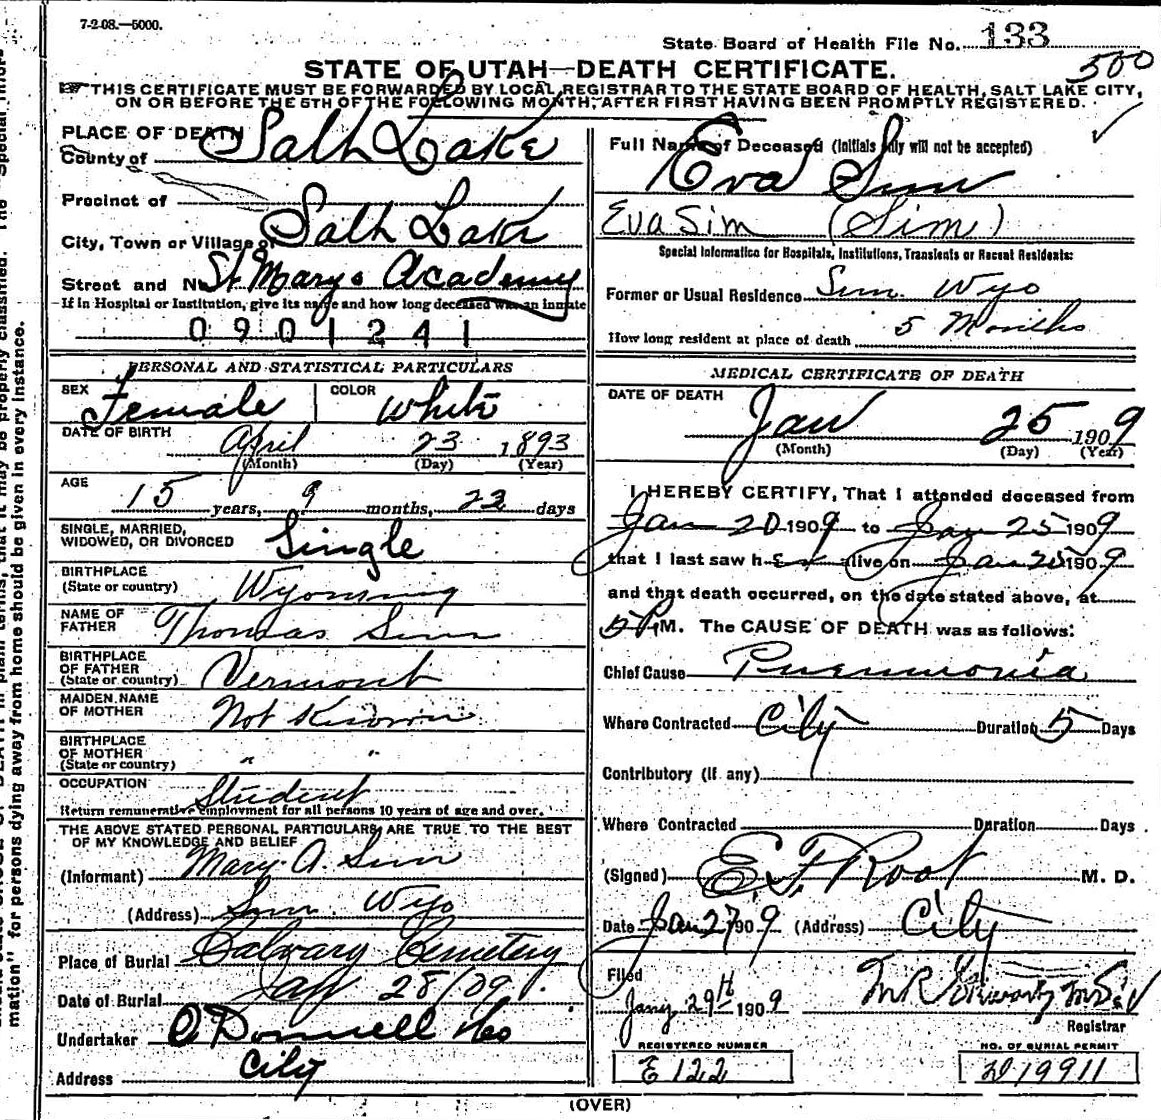 7-2-08.—5000.
State Board of Health File No. 133
500
STATE OF UTAH—DEATH CERTIFICATE.
THIS CERTIFICATE MUST BE FORWARDED BY LOCAL REGISTRAR TO THE STATE BOARD OF HEALTH, SALT LAKE CITY,
ON OR BEFORE THE 5TH OF THE FOLLOWING MONTH, AFTER FIRST HAVING BEEN PROMPTLY REGISTERED.
PLACE OF DEATH
County of Salt Lake
Precinct of
City, Town or Village of Salt Lake
Street and No. St Marys Academy
If in Hospital or Institution, give its name and how long deceased was an inmate
0901241
Full Name of Deceased (Initials only will not be accepted)
Eva Sim
Eva Sim (Sim)
Special Information for Hospitals, Institutions, Transients or Recent Residents:
Former or Usual Residence Sim. Wyo
How long resident at place of death 5 Months
PERSONAL AND STATISTICAL PARTICULARS
SEX Female COLOR White
DATE OF BIRTH April 23 1893
(Month) (Day) (Year)
AGE 15 years, 9 months, 22 days
SINGLE, MARRIED,
WIDOWED, OR DIVORCED Single
BIRTHPLACE
(State or country) Wyoming
NAME OF
FATHER Thomas Sim
BIRTHPLACE
OF FATHER
(State or country) Vermont
MAIDEN NAME
OF MOTHER Not Known
BIRTHPLACE
OF MOTHER
(State or country) " "
OCCUPATION Student
Return remunerative employment for all persons 10 years of age and over.
THE ABOVE STATED PERSONAL PARTICULARS ARE TRUE TO THE BEST
OF MY KNOWLEDGE AND BELIEF
(Informant) Mary A. Sim
(Address) Sim. Wyo
Place of Burial Calvary Cemetery
Date of Burial Jany 28/09.
Undertaker O'Donnell &co
Address City
MEDICAL CERTIFICATE OF DEATH
DATE OF DEATH
Jan 25 1909
(Month) (Day) (Year)
I HEREBY CERTIFY, That I attended deceased from
Jan 20 1909 to Jan 25 1909
that I last saw her alive on Jan 25 1909
and that death occurred, on the date stated above, at
5 P.M. The CAUSE OF DEATH was as follows:
Chief Cause Pneumonia
Where Contracted City Duration 5 Days
Contributory (if any)
Where Contracted Duration Days
(Signed) E F Root M. D.
Date Jan 27 1909 (Address) City
Filed
Jany 29th 1909
Registrar
REGISTERED NUMBER
E 122
NO. OF BURIAL PERMIT
D 19911
(OVER)
mation" for persons dying away from home should be given in every instance.